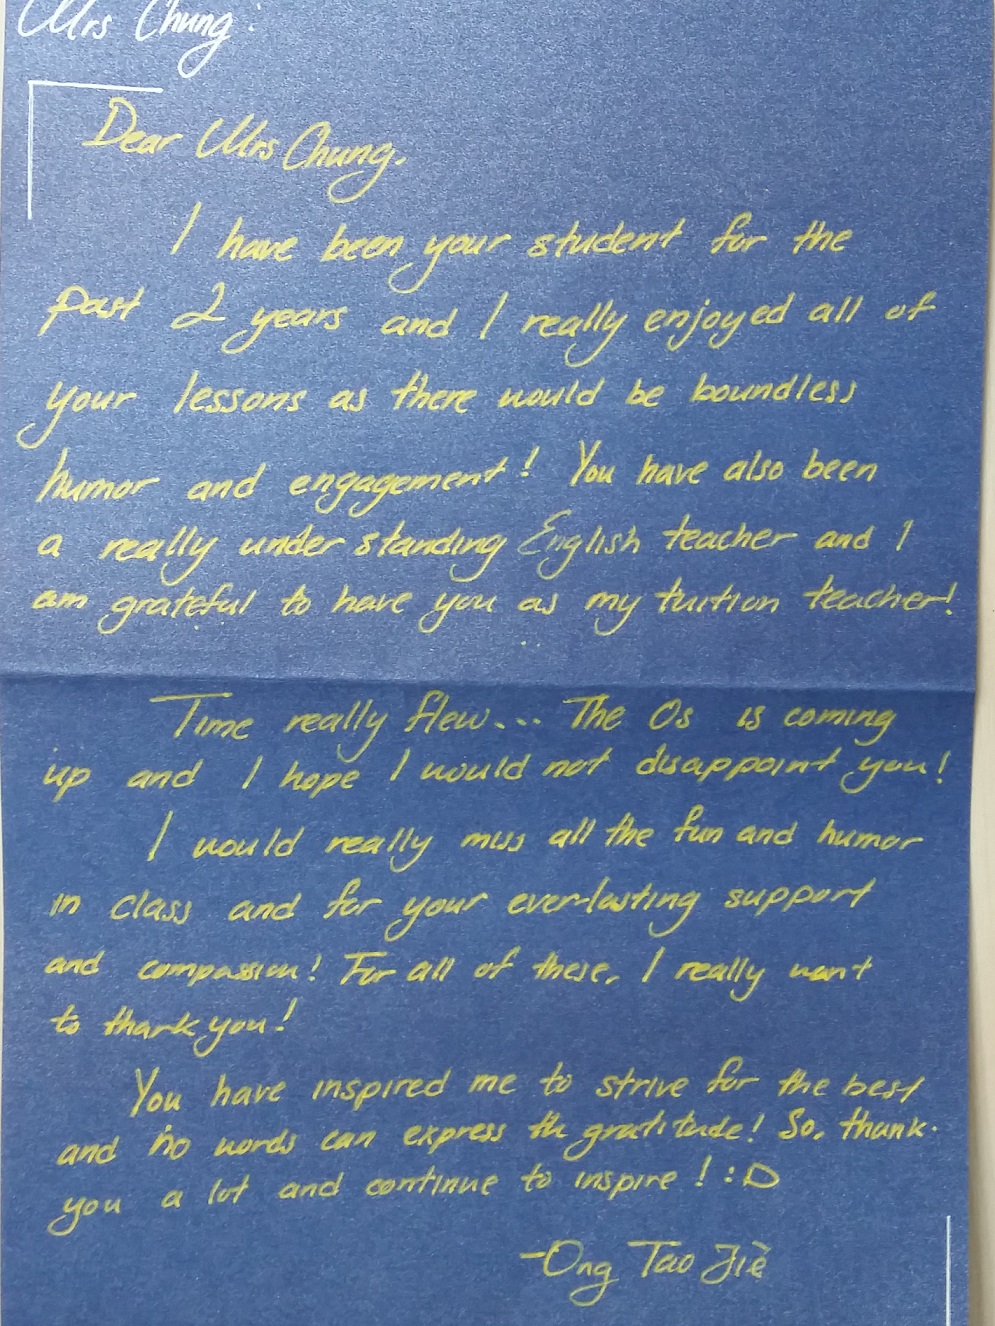 Mrs Chung:
Dear Mrs Chung,
I have been your student for the
past 2 years and I really enjoyed all of
your lessons as there would be boundless
humor and engagement! You have also been
a really understanding English teacher and I
am grateful to have you as my tuition teacher!
Time really flew... The Os is coming
up and I hope I would not disappoint you!
I would really miss all the fun and humor
in class and for your ever-lasting support
and compassion! For all of these, I really want
to thank you!
You have inspired me to strive for the best
and no words can express th gratitude! So, thank
you a lot and continue to inspire! :D
-Ong Tao Jiè